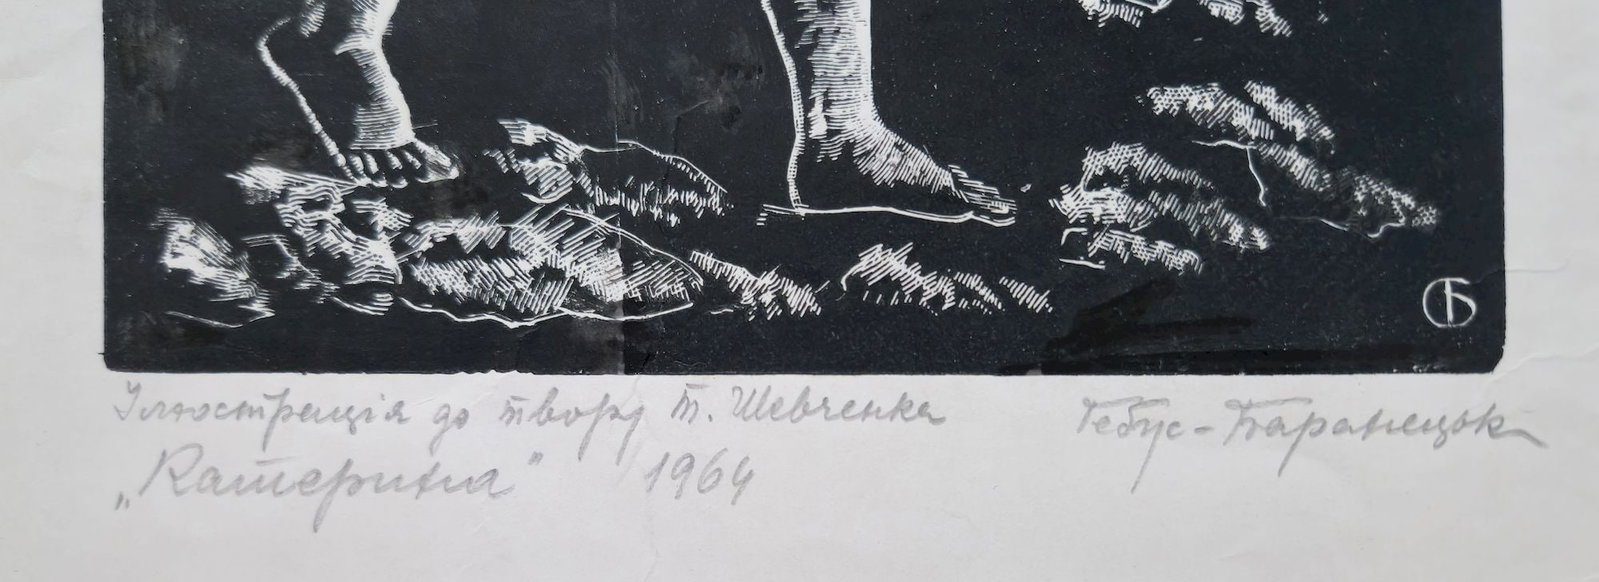 Ілюстрація до твору Т. Шевченка
„Катерина" 1964
Гебус-Баранецька
ГБ